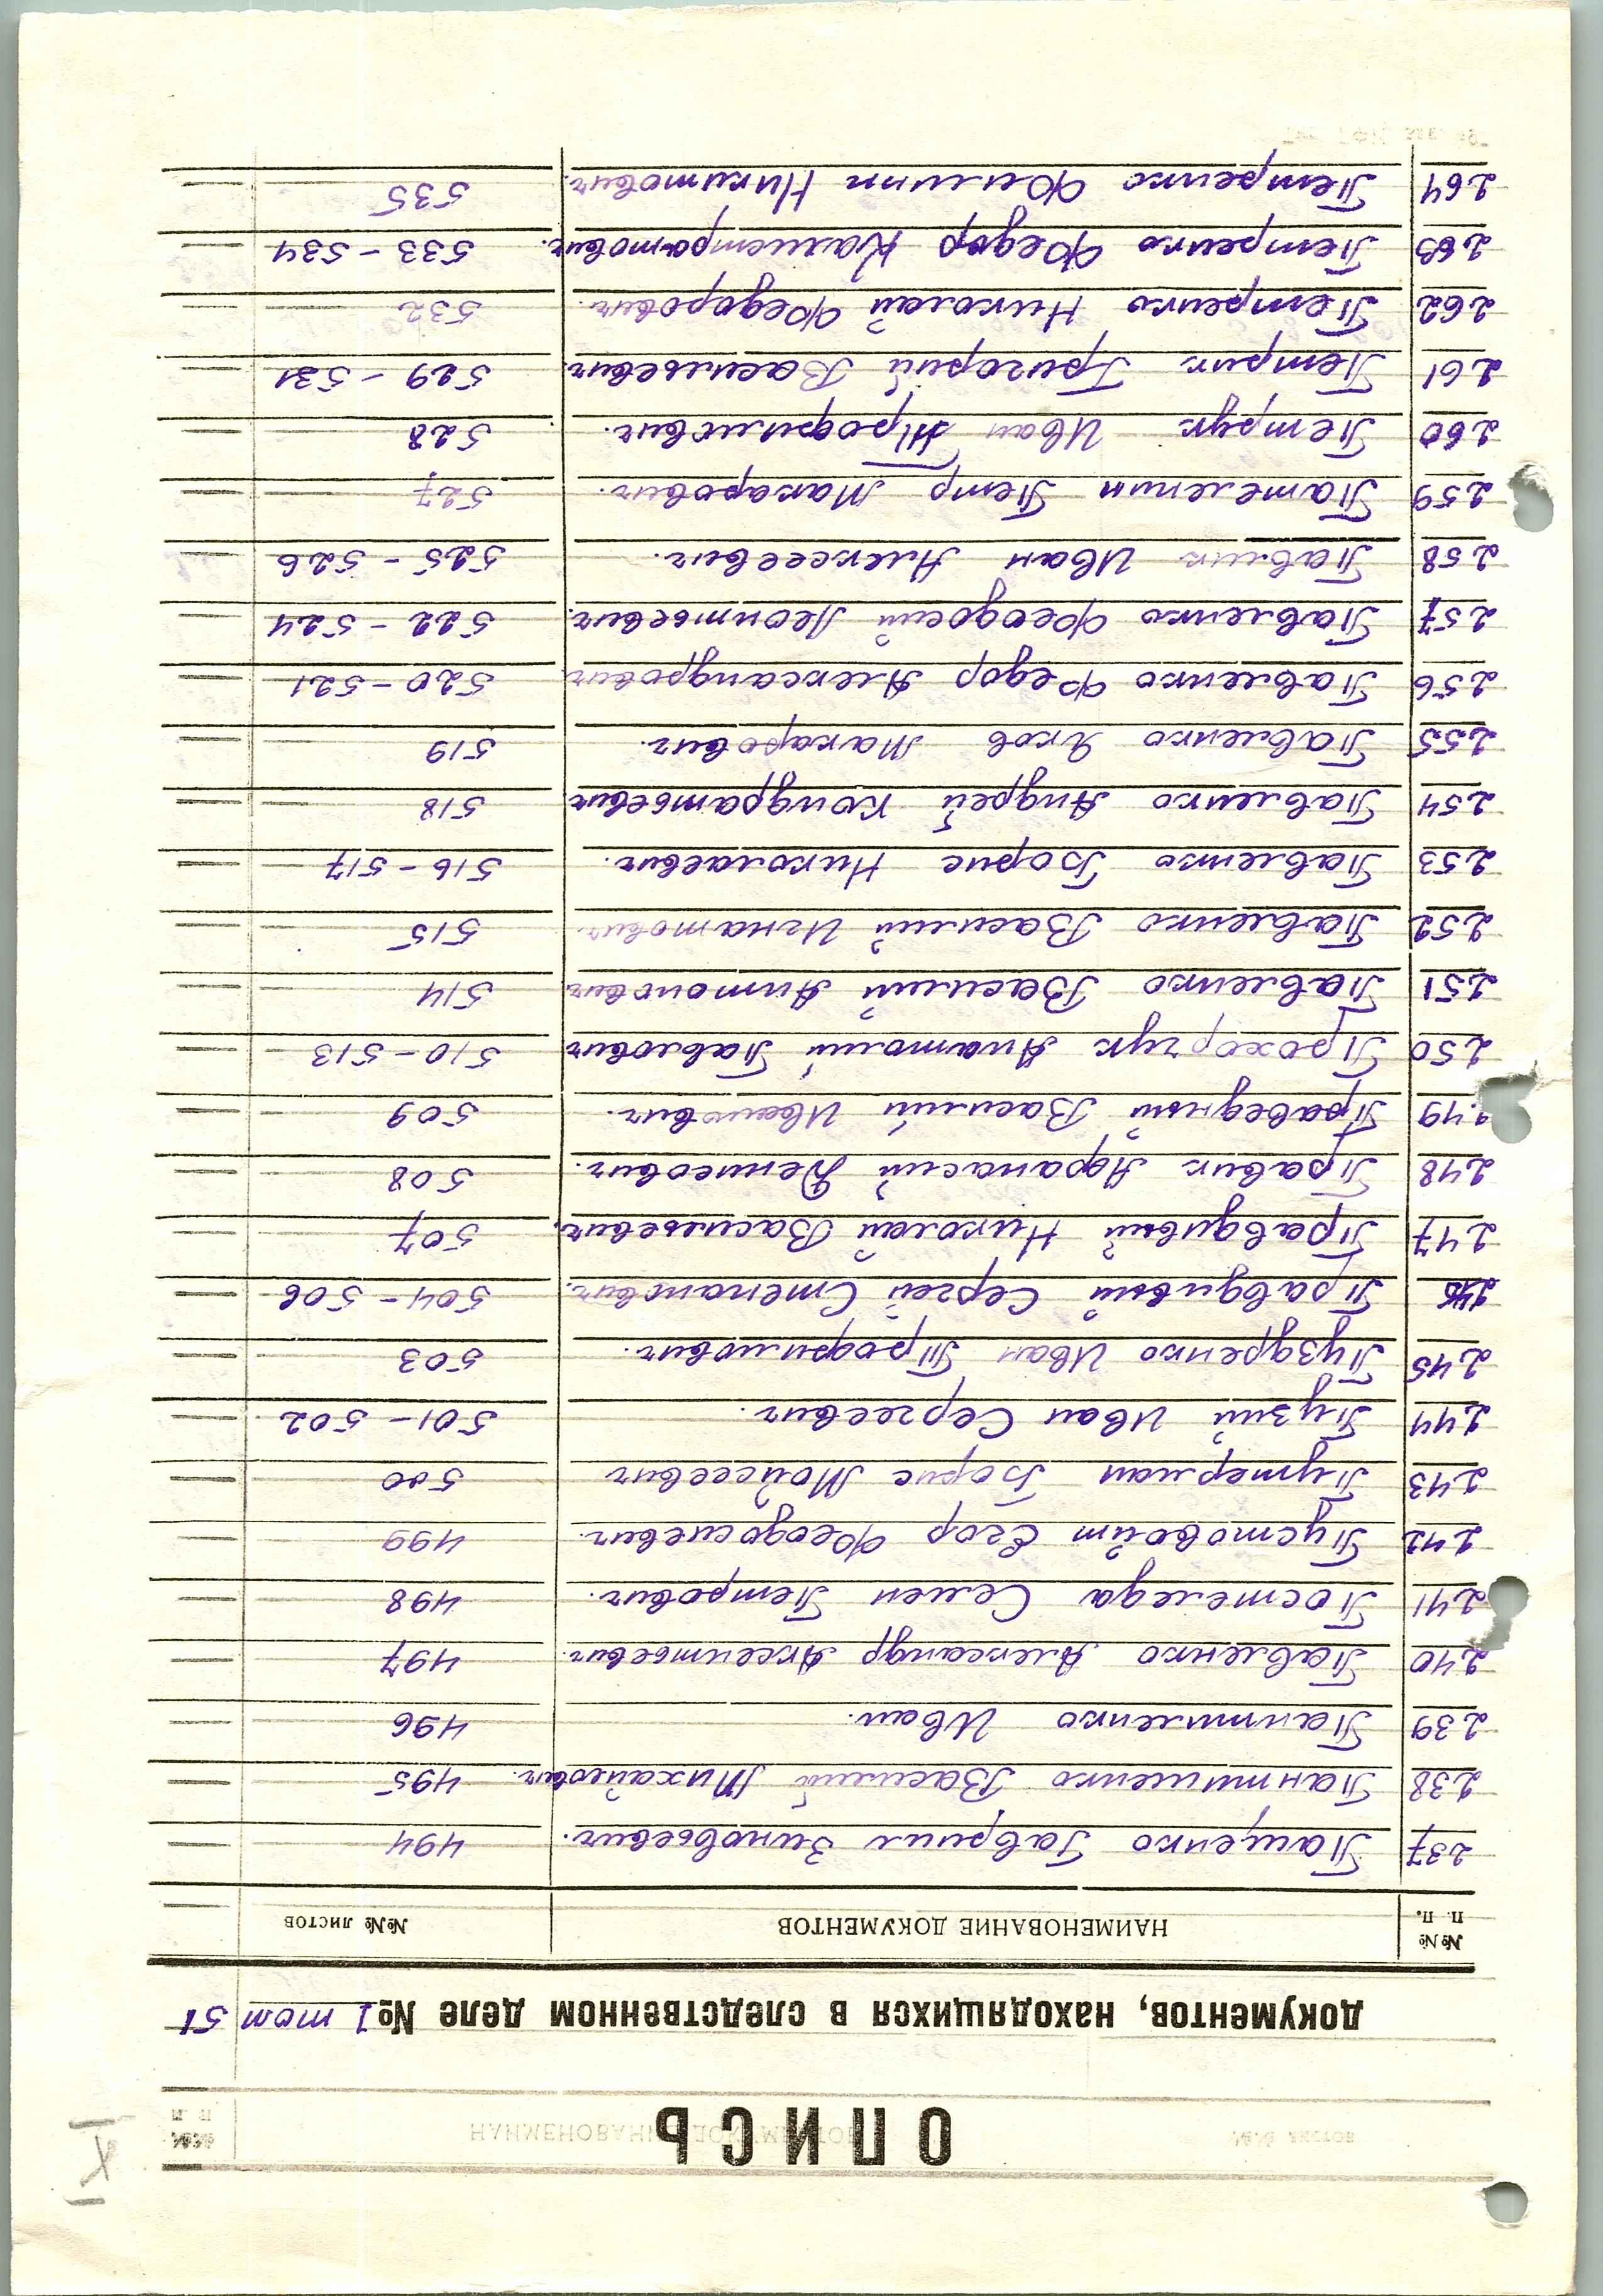 ОПИСЬ
документов, находящихся в следственном деле № 1 том 51
№№ п. п. НАИМЕНОВАНИЕ ДОКУМЕНТОВ №№ листов
237 Пащенко Гавриил Зиновьевич. 494
238 Пантиленко Василий Михайлович. 495
239 Пантиленко Иван. 496
240 Павленко Александр Аксентьевич. 497
241 Постеледа Семен Петрович. 498
242 Пустовойт Егор Феодосиевич. 499
243 Путерман Борис Мойсеевич 500
244 Пузий Иван Сергеевич. 501-502
245 Пуздренко Иван Трофимович. 503
246 Правдивый Сергей Степанович. 504-506
247 Правдивый Николай Васильевич. 507
248 Правик Афанасий Денисович. 508
249 Праведный Василий Иванович. 509
250 Прохорчук Анатолий Павлович 510-513
251 Павленко Василий Антонович 514
252 Павленко Василий Игнатович 515
253 Павленко Борис Николаевич. 516-517
254 Павленко Андрей Кондратьевич 518
255 Павленко Яков Макарович. 519
256 Павленко Федор Александрович 520-521
257 Павленко Феодосий Леонтьевич. 522-524
258 Павлик Иван Алексеевич. 525-526
259 Пателепин Петр Макарович. 527
260 Петрук Иван Трофимович. 528
261 Петрик Григорий Васильевич. 529-531
262 Петренко Николай Федорович. 532
263 Петренко Федор Калистратович. 533-534
264 Петренко Филипп Никитович. 535